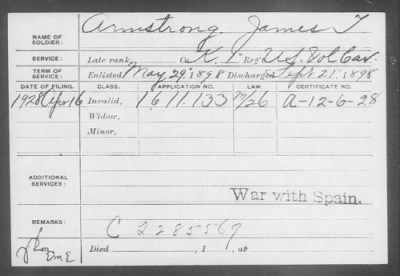 NAME OF SOLDIER: Armstrong, James T
SERVICE: Late rank, Co. K, 1 Reg't U.S. Vol Cav.
TERM OF SERVICE: Enlisted May 29, 1898 Discharged Sept 21, 1898
DATE OF FILING. CLASS. APPLICATION NO. LAW. CERTIFICATE NO.
1928 Apr 16 Invalid, 1611.133 A-12-6-28
Widow,
Minor,
ADDITIONAL SERVICES:
War with Spain.
REMARKS: C 2285569
Died , 1 , at